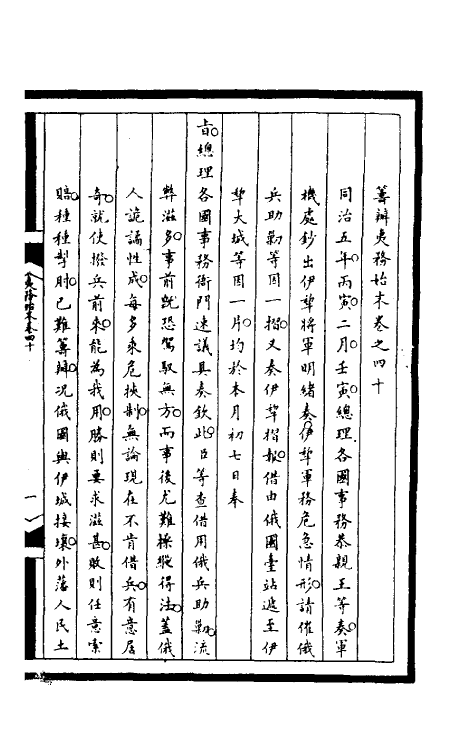 籌辦夷務始末卷之四十
同治五年丙寅二月壬寅總理各國事務恭親王等奏軍
機處鈔出伊犂將軍明緒奏伊犂軍務危急情形請催俄
兵助勦等因一摺又奏伊犂摺報借由俄國臺站遞至伊
犂大城等因一片均於本月初七日奉
旨總理各國事務衙門速議具奏欽此臣等查借用俄兵助勦流
弊滋多事前旣恐駕馭無方而事後尤難操縱得法蓋俄
人詭譎性成每多乘危挾制無論現在不肯借兵有意居
奇就使撥兵前來能為我用勝則要求滋甚敗則任意索
賠種種掣肘已難籌辦況俄國與伊城接壤外藩人民土
夷務始末卷四十
一